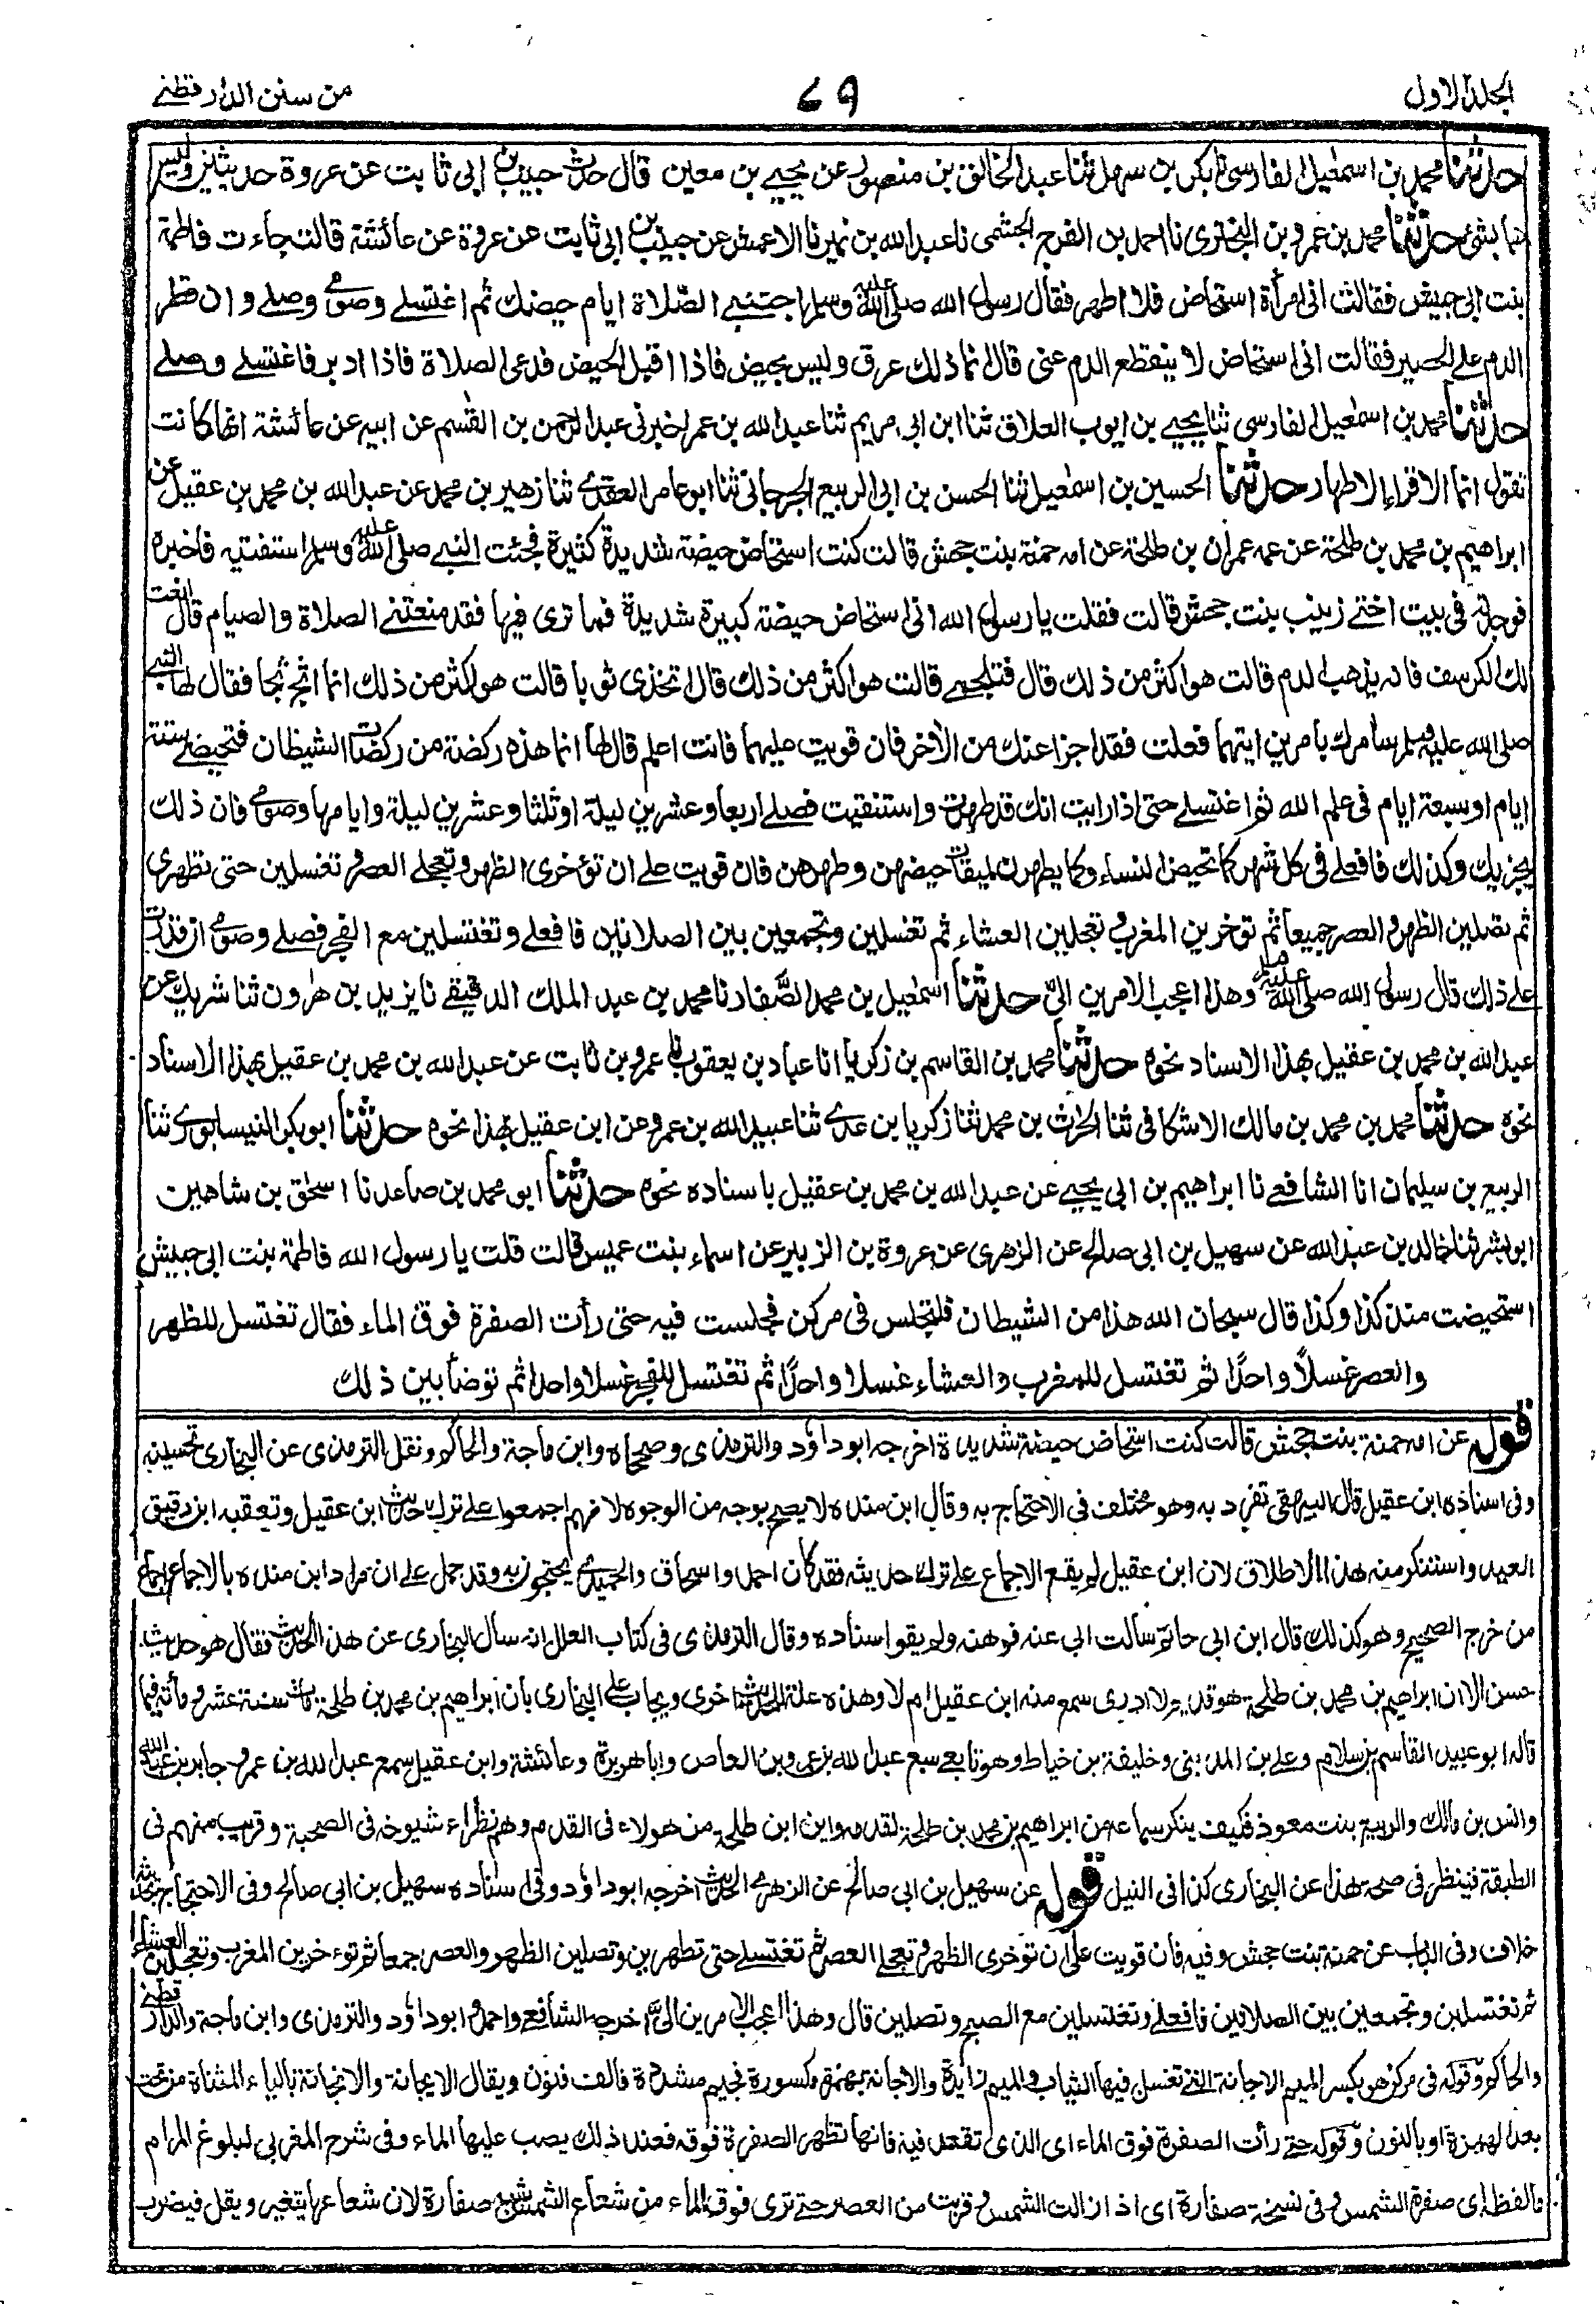 الجلد الاول
٧٩
من سنن الدارقطنے
حدثنا محمد بن اسمٰعیل الفارسی نا بکر بن سهل ثنا عبد الخالق بن منصور عن یحیے بن معین قال حدث حبیب بن ابی ثابت عن عروة حدیثین ولیس
هما بشئ حدثنا محمد بن عمرو بن البختری نا احمد بن الفرج الجشمی نا عبد الله بن نمیر نا الاعمش عن حبیب بن ابی ثابت عن عروة عن عائشة قالت جاءت فاطمة
بنت ابی حبیش فقالت انی امرأة استحاض فلا اطهر فقال رسول الله صلی الله علیه وسلم اجتنبے الصلاة ایام حیضك ثم اغتسلے وصومی وصلے وان قطر
الدم علے الحصیر فقالت انی استحاض لا ینقطع الدم عنی قال انما ذلك عرق ولیس بحیض فاذا اقبل الحیض فدعی الصلاة فاذا ادبر فاغتسلے وصلے
حدثنا محمد بن اسمٰعیل الفارسی ثنا یحیے بن ایوب العلاق ثنا ابن ابی مریم ثنا عبد الله بن عمر اخبرنی عبد الرحمن بن القٰسم عن ابیه عن عائشة انها کانت
تقول انما الاقراء الاطهار حدثنا الحسین بن اسمٰعیل ثنا الحسن بن ابی الربیع الجرجانی ثنا ابو عامر العقدے ثنا زهیر بن محمد عن عبد الله بن محمد بن عقیل عن
ابراهیم بن محمد بن طلحة عن عمه عمران بن طلحة عن امه حمنة بنت جحش قالت کنت استحاض حیضة شدیدة کثیرة فجئت النبے صلی الله علیه وسلم استفتیه فاخبره
فوجدته فی بیت اختے زینب بنت جحش قالت فقلت یا رسول الله انی استحاض حیضة کبیرة شدیدة فما تری فیها فقد منعتنے الصلاة والصیام قال انعت
لك الکرسف فانه یذهب الدم قالت هو اکثر من ذلك قال فتلجمے قالت هو اکثر من ذلك قال اتخذی ثوبا قالت هو اکثر من ذلك انما اثج ثجا فقال لها النبے
صلی الله علیه وسلم سآمرك بامرین ایتهما فعلت فقد اجزا عنك من الآخر فان قویت علیهما فانت اعلم قال لها انما هذه رکضة من رکضات الشیطان فتحیضے ستة
ایام او سبعة ایام فی علم الله ثم اغتسلے حتی اذا رایت انك قد طهرت واستنقیت فصلے اربعا وعشرین لیلة او ثلثا وعشرین لیلة وایامها وصومی فان ذلك
یجزیك وکذلك فافعلے فی کل شهر کما تحیض النساء وکما یطهرن لمیقات حیضهن وطهرهن فان قویت علے ان تؤخری الظهر وتعجلے العصر وتغتسلین حتی تطهری
ثم تصلین الظهر والعصر جمیعا ثم توخرین المغرب وتعجلین العشاء ثم تغتسلین وتجمعین بین الصلاتین فافعلے وتغتسلین مع الفجر فصلے وصومی ان قدرت
علے ذلك قال رسول الله صلی الله علیه وسلم وهذا اعجب الامرین الیّ حدثنا اسمٰعیل بن محمد الصّفار نا محمد بن عبد الملك الدقیقے نا یزید بن هٰرون ثنا شریك عن
عبد الله بن محمد بن عقیل بهذا الاسناد نحوه حدثنا محمد بن القاسم بن زکریا انا عباد بن یعقوب نا عمرو بن ثابت عن عبد الله بن محمد بن عقیل بهذا الاسناد
نحوه حدثنا محمد بن محمد بن مالك الاشکافی ثنا الحٰرث بن محمد ثنا زکریا بن عدے ثنا عبید الله بن عمرو عن ابن عقیل بهذا نحوه حدثنا ابو بکر النیسابوری ثنا
الربیع بن سلیمان انا الشافعے نا ابراهیم بن ابی یحیے عن عبد الله بن محمد بن عقیل باسناده نحوه حدثنا ابو محمد بن صاعد نا اسحٰق بن شاهین
ابو بشر ثنا خالد بن عبد الله عن سهیل بن ابی صالح عن الزهری عن عروة بن الزبیر عن اسماء بنت عمیس قالت قلت یا رسول الله فاطمة بنت ابی حبیش
استحیضت منذ کذا وکذا قال سبحان الله هذا من الشیطان فلتجلس فی مرکن فجلست فیه حتی رأت الصفرة فوق الماء فقال تغتسل للظهر
والعصر غسلاً واحدًا ثم تغتسل للمغرب والعشاء غسلا واحدًا ثم تغتسل للفجر غسلا واحدا ثم توضأ بین ذلك
قوله عن امه حمنة بنت جحش قالت کنت استحاض حیضة شدیدة اخرجه ابو داؤد والترمذی وصححاه وابن ماجة والحاکم ونقل الترمذی عن البخاری تحسینه
وفی اسناده ابن عقیل قال البیهقی تفرد به وهو مختلف فی الاحتجاج به وقال ابن منده لا یصح بوجه من الوجوه لانهم اجمعوا علے ترك حدیث ابن عقیل وتعقبه ابن دقیق
العید واستنکر منه هذا الاطلاق لان ابن عقیل لم یقع الاجماع علے ترك حدیثه فقد کان احمد واسحاق والحمیدے یحتجون به وقد حمل علے ان مراد ابن منده بالاجماع اجماع
من خرج الصحیح وهو کذلك قال ابن ابی حاتم سألت ابی عنه فوهنه ولم یقو اسناده وقال الترمذی فی کتاب العلل انه سال البخاری عن هذا الحدیث فقال هو حدیث
حسن الا ان ابراهیم بن محمد بن طلحة هو قدیم لا ادری سمع منه ابن عقیل ام لا وهذه علة للحدیث اخری ویجاب علی البخاری بان ابراهیم بن محمد بن طلحة مات سنة عشر ومأة فیما
قاله ابو عبید القاسم بن سلام وعلے بن المدینی وخلیفة بن خیاط وهو تابعے سمع عبد الله بن عمرو بن العاص وابا هریرة وعائشة وابن عقیل سمع عبد الله بن عمر وجابر بن عبد الله
وانس بن مالك والربیع بنت معوذ فکیف ینکر سماعه من ابراهیم بن محمد بن طلحة لقدمه واین ابن طلحة من هولاء فی القدم وهم نظراء شیوخه فی الصحبة وقریب منهم فی
الطبقة فینظر فی صحة هذا عن البخاری کذا فی النیل قوله عن سهیل بن ابی صالح عن الزهری الحدیث اخرجه ابو داؤد وفی اسناده سهیل بن ابی صالح وفی الاحتجاج بحدیثه
خلاف وفی الباب عن حمنة بنت جحش وفیه فان قویت علی ان توخری الظهر وتعجلے العصر ثم تغتسلے حتی تطهرین وتصلین الظهر والعصر جمعا ثم توءخرین المغرب وتعجلین العشاء
ثم تغتسلین وتجمعین بین الصلاتین فافعلے وتغتسلین مع الصبح وتصلین قال وهذا اعجب الامرین الیَّ اخرجه الشافعے واحمد وابو داؤد والترمذی وابن ماجة والدارقطنے
والحاکم وقوله فی مرکن هو بکسر المیم الاجانة التے تغسل فیها الثیاب والمیم زایدة والاجانة بهمزة مکسورة فجیم مشددة فالف فنون ویقال الایجانة والانجانة بالیاء المثناة من تحت
بعد الهمزة او بالنون وقوله حتے رأت الصفرة فوق الماء ای الذی تقعد فیه فانها تظهر الصفرة فوقه فعند ذلك یصب علیها الماء وفی شرح المغربی لبلوغ المرام
ما لفظه ای صفرة الشمس وفی نسخة صفارة ای اذا زالت الشمس وقربت من العصر حتے تری فوق الماء من شعاع الشمس شبه صفارة لان شعاعها یتغیر ویقل فیضرب